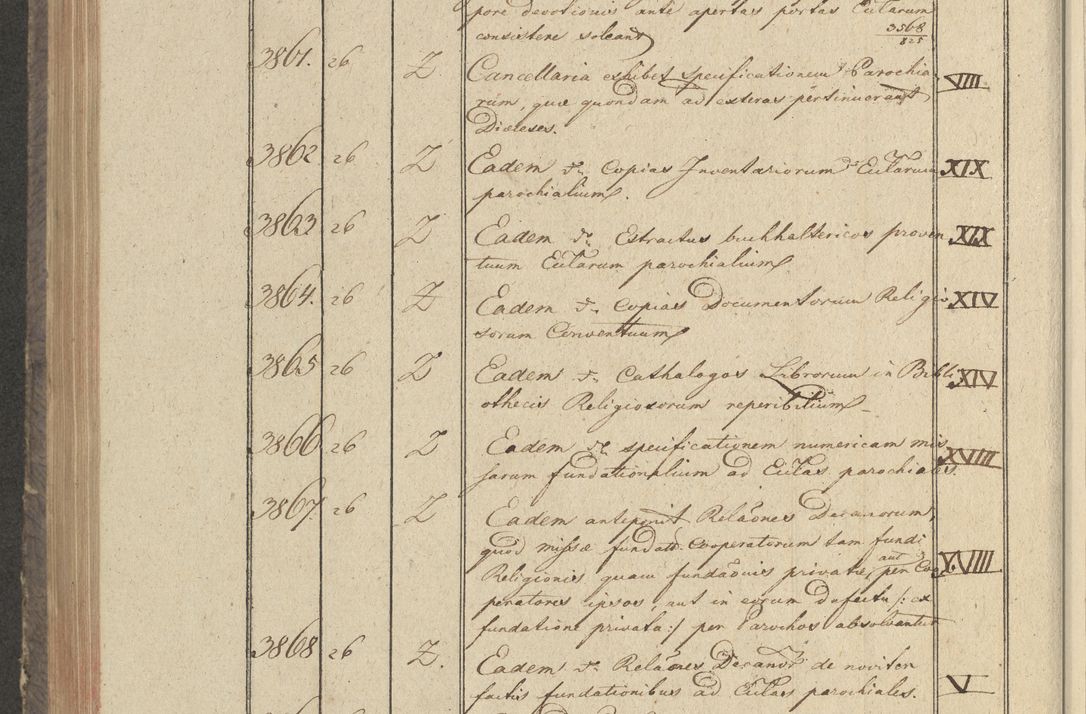 pore devotionis ante apertas portas Ecclarum
consistere soleant
3568
825
3861. 26 Z Cancellaria exhibet specificationem Parochia- VIII
rum, quæ quondam ad exteras pertinuerant
Diœceses.
3862 26 Z Eadem dto Copias Inventariorum Ecclarum XIX
parochialium.
3863 26 Z Eadem dto Extractus buchhaltericos proven- XIX
tuum Ecclarum parochialium.
3864. 26 Z Eadem dto Copias Documentorum Religio- XIV
sorum Conventuum
3865 26 Z Eadem dto Cathalogos Librorum in Bibli- XIV
othecis Religiosorum reperibilium
3866 26 Z Eadem dto specificationem numericam mis- XVIII
sarum fundationalium ad Ecclas parochiales.
3867 26 Z Eadem anteponit Relaōnes Decanorum,
quod missæ fundat. Cooperatorum tam fundi
Religionis quam fundaōnis privatæ, aut per Coo- XVIII
peratores ipsos, aut in eorum defectu /: ex
fundatione privata :/ per Parochos absolvantur
3868 26 Z. Eadem dto Relaōnes Decanor de noviter
factis fundationibus ad Ecclas parochiales. V